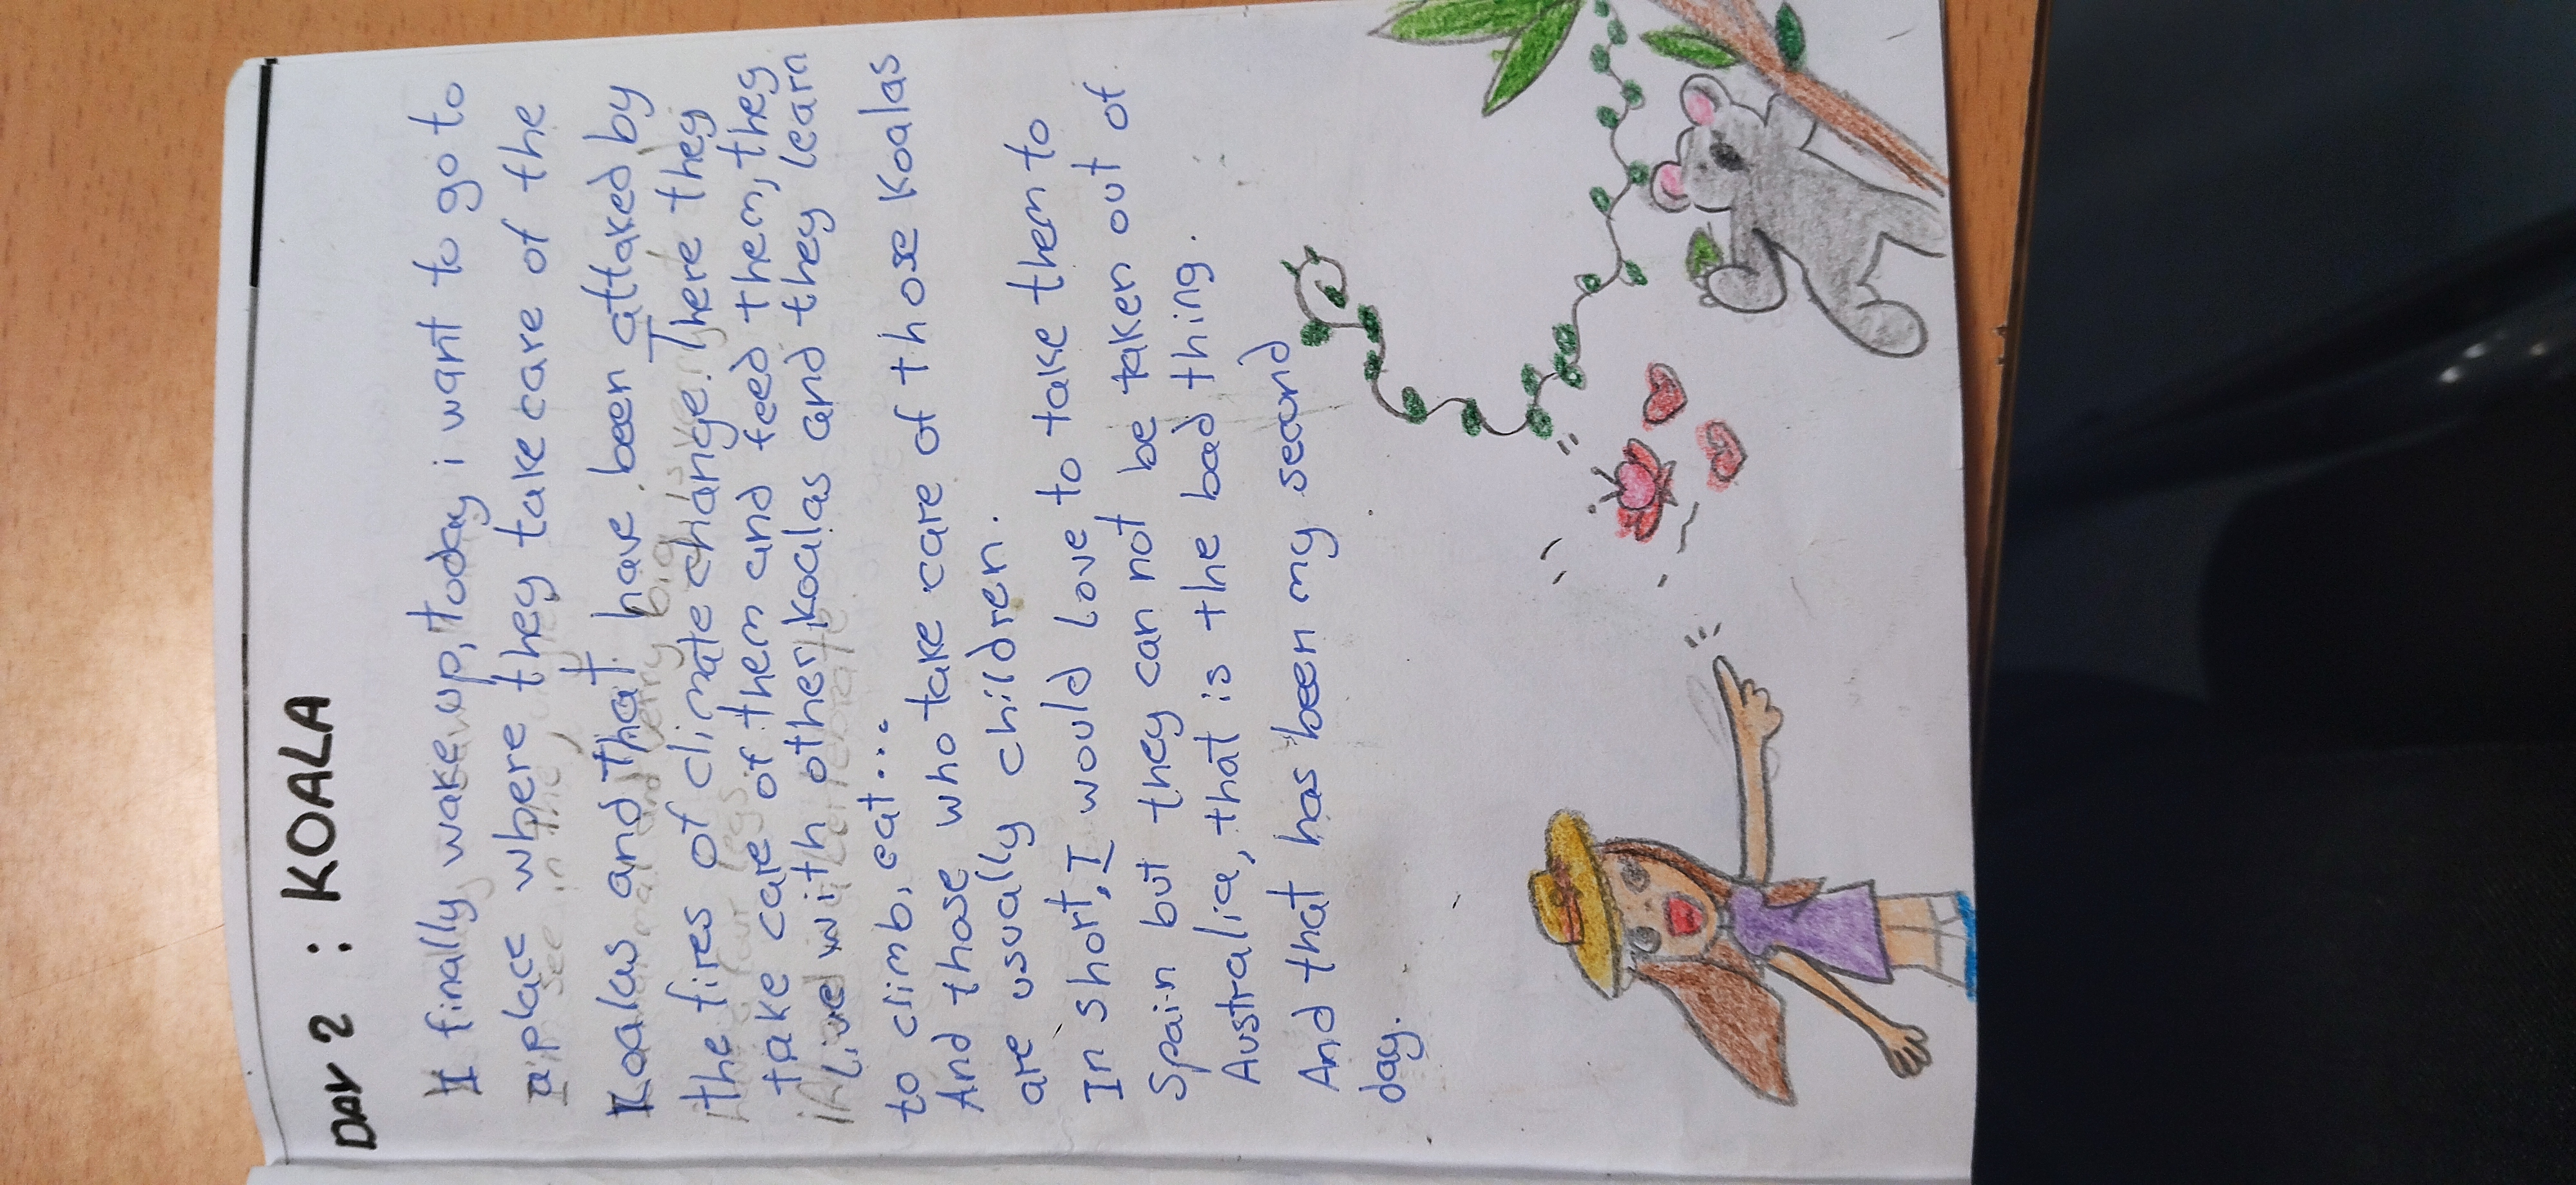 DAY 2 : KOALA
I finally wake up, today i want to go to
a place where they take care of the
Koalas and that have been attaked by
the fires of climate change. There they
take care of them and feed them, they
live with other koalas and they learn
to climb, eat...
And those who take care of those koalas
are usually children.
In short, I would love to take them to
Spain but they can not be taken out of
Australia, that is the bad thing.
And that has been my second
day.